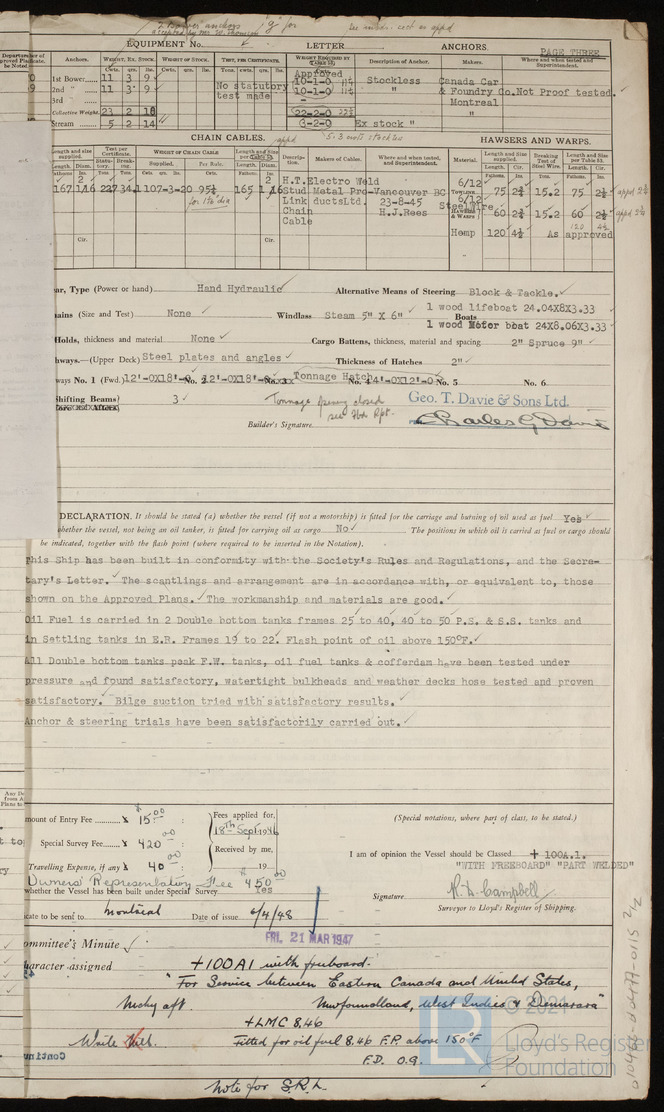 2 Bower anchors "y" for
accepted by Mr. W. Thomson
EQUIPMENT No. LETTER ANCHORS. PAGE THREE
Anchors. WEIGHT, EX. STOCK. WEIGHT OF STOCK. TEST, PER CERTIFICATE. WEIGHT REQUIRED BY TABLE 53. Description of Anchor. Makers. Where and when tested and Superintendent.
Cwts. qrs. lbs. Cwts. qrs. lbs. Tons. cwt. qrs. lbs. Approved
1st Bower 11 3 9 No statutory 10-1-0 Stockless Canada Car
2nd " 11 3 9 test made 10-1-0 " & Foundry Co. Not Proof tested.
3rd " Montreal
Collective Weight 23 2 18 22-2-0 "
Stream 5 2 14 3-2-0 Ex stock "
CHAIN CABLES. HAWSERS AND WARPS.
Length and size supplied. Test per Certificate. WEIGHT OF CHAIN CABLE Length and Size per Table 53. Description. Makers of Cables. Where and when tested, and Superintendent. Material. Length and Size supplied. Breaking Test of Steel Wire. Length and Size per Table 53.
Fathoms. Diam. Statutory. Breaking. Supplied. Per Rule. Length. Diam.
H.T. Electro Weld
167 1/16 107-3-20 95½ 165 1 Stud Metal Pro-Vancouver BC 6/12 75 2¾ 15.2 75 2½
for 1⅛ dia Link ductsLtd. 23-8-45 6/12 Steel Wire
Chain H.J.Rees 60 2¾ 15.2 60 2½
Cable
Hemp 120 4½ As approved
Gear, Type (Power or hand) Hand Hydraulic Alternative Means of Steering Block & Tackle.
(Size and Test) None Windlass Steam 5" X 6" Boats 1 wood lifeboat 24.04X8X3.33
1 wood Motor boat 24X8.06X3.33
Holds, thickness and material None Cargo Battens, thickness, material and spacing 2" Spruce 9"
(Upper Deck) Steel plates and angles Thickness of Hatches 2"
No. 1 (Fwd.) 12'-0X18'- No. 2 12'-0X18'- No. 3 Tonnage Hatch No. 4 4'-0X12'-0 No. 5 No. 6
Shifting Beams 3 Tonnage opening closed
see Fbd Rpt.
Geo. T. Davie & Sons Ltd.
Builder's Signature Charles G Davie
DECLARATION. It should be stated (a) whether the vessel (if not a motorship) is fitted for the carriage and burning of oil used as fuel Yes
whether the vessel, not being an oil tanker, is fitted for carrying oil as cargo No The positions in which oil is carried as fuel or cargo should
be indicated, together with the flash point (where required to be inserted in the Notation).
This Ship has been built in conformity with the Society's Rules and Regulations, and the Secre-
tary's Letter. The scantlings and arrangement are in accordance with, or equivalent to, those
shown on the Approved Plans. The workmanship and materials are good.
Oil Fuel is carried in 2 Double bottom tanks frames 25 to 40, 40 to 50 P.S. & S.S. tanks and
in Settling tanks in E.R. Frames 19 to 22. Flash point of oil above 150°F.
All Double bottom tanks peak F.W. tanks, oil fuel tanks & cofferdam have been tested under
pressure and found satisfactory, watertight bulkheads and weather decks hose tested and proven
satisfactory. Bilge suction tried with satisfactory results.
Anchor & steering trials have been satisfactorily carried out.
Amount of Entry Fee $ 15.00 Fees applied for, (Special notations, where part of class, to be stated.)
18th Sept 1946
Special Survey Fee $ 420.00 Received by me,
I am of opinion the Vessel should be Classed + 100A.1.
Travelling Expense, if any $ 40.00 19
"WITH FREEBOARD" "PART WELDED"
Owners' Representation Fee 450.00
whether the Vessel has been built under Special Survey Yes
Signature R. L. Campbell
Surveyor to Lloyd's Register of Shipping.
Certificate to be sent to Montreal Date of issue 6/4/48
FRI. 21 MAR 1947
Committee's Minute
Character assigned +100A1 with freeboard
"For Service between Eastern Canada and United States,
Machy aft. Newfoundland, West Indies & Demerara"
+LMC 8.46
Write Fitted for oil fuel 8.46 F.P. above 150°F
F.D. O.G.
Note for S.R.L.
© 2021
Lloyd's Register
Foundation